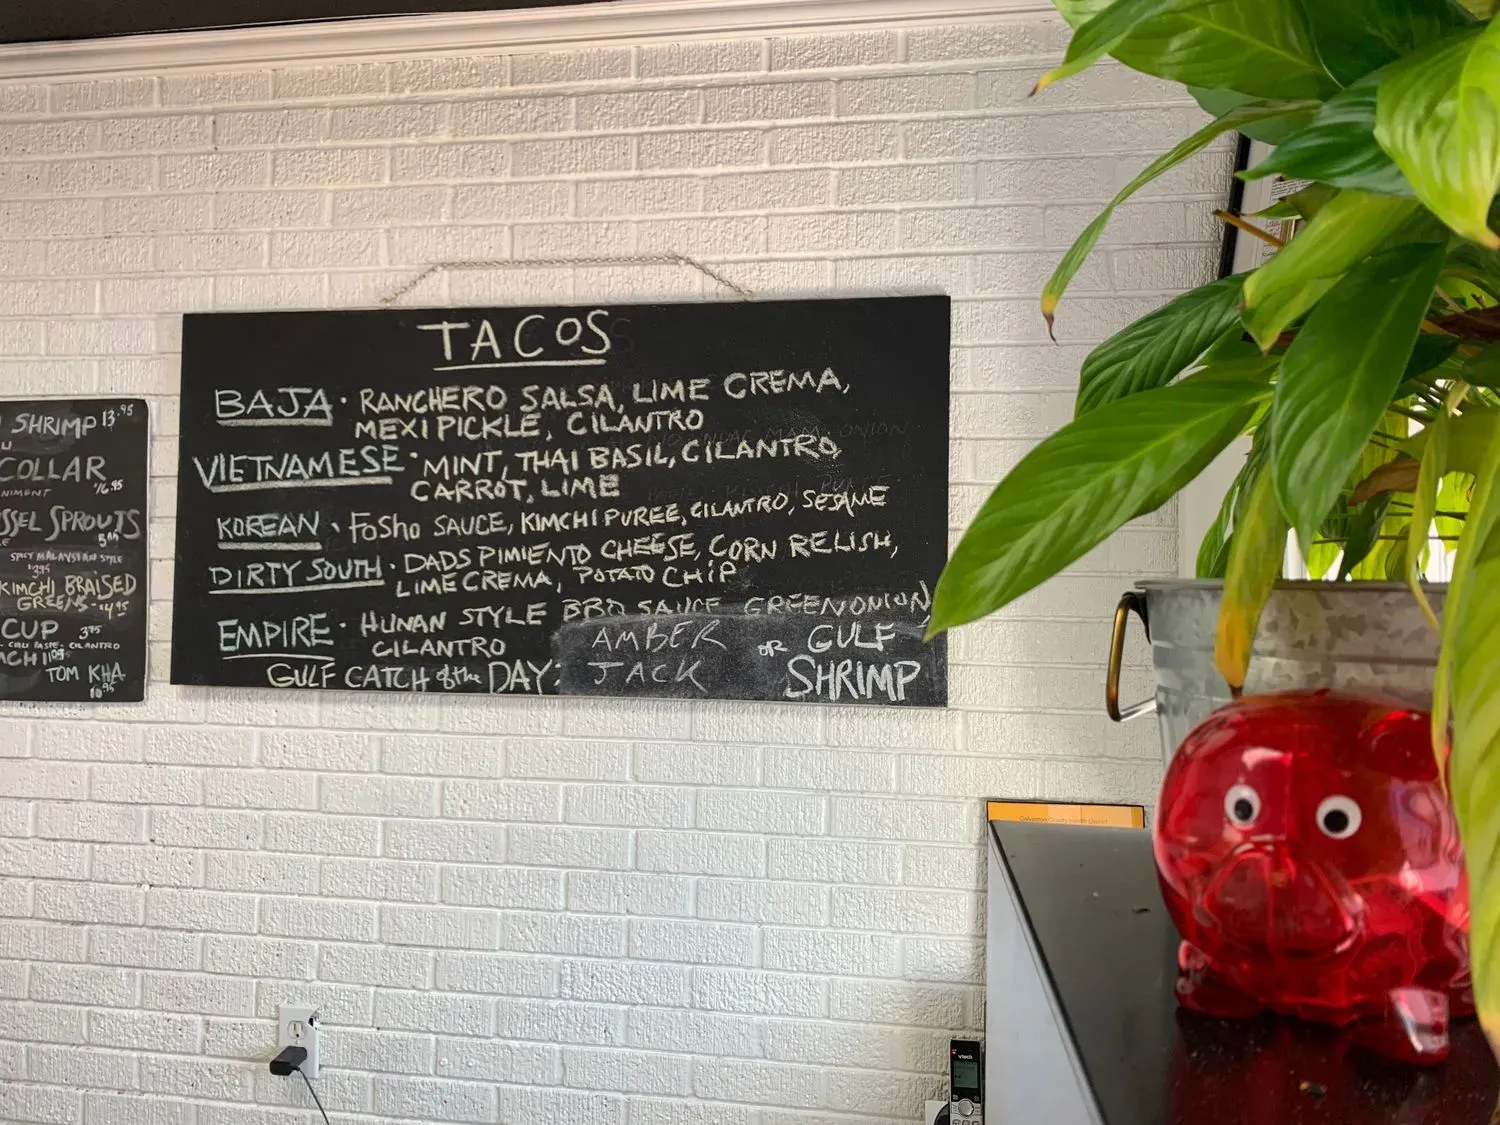 TACOS
BAJA · RANCHERO SALSA, LIME CREMA,
MEXI PICKLE, CILANTRO
VIETNAMESE · MINT, THAI BASIL, CILANTRO,
CARROT, LIME
KOREAN · FOSHO SAUCE, KIMCHI PUREE, CILANTRO, SESAME
DIRTY SOUTH · DADS PIMIENTO CHEESE, CORN RELISH,
LIME CREMA, POTATO CHIP
EMPIRE · HUNAN STYLE BBQ SAUCE GREEN ONION,
CILANTRO
GULF CATCH of the DAY: AMBER JACK OR GULF SHRIMP
SHRIMP 13.95
COLLAR
16.95
SSEL SPROUTS
SPICY MALAYSIAN STYLE
KIMCHI BRAISED
GREENS - 4.95
CUP 3.95
CILANTRO
TOM KHA
10.95
Galveston County Health District
vtech